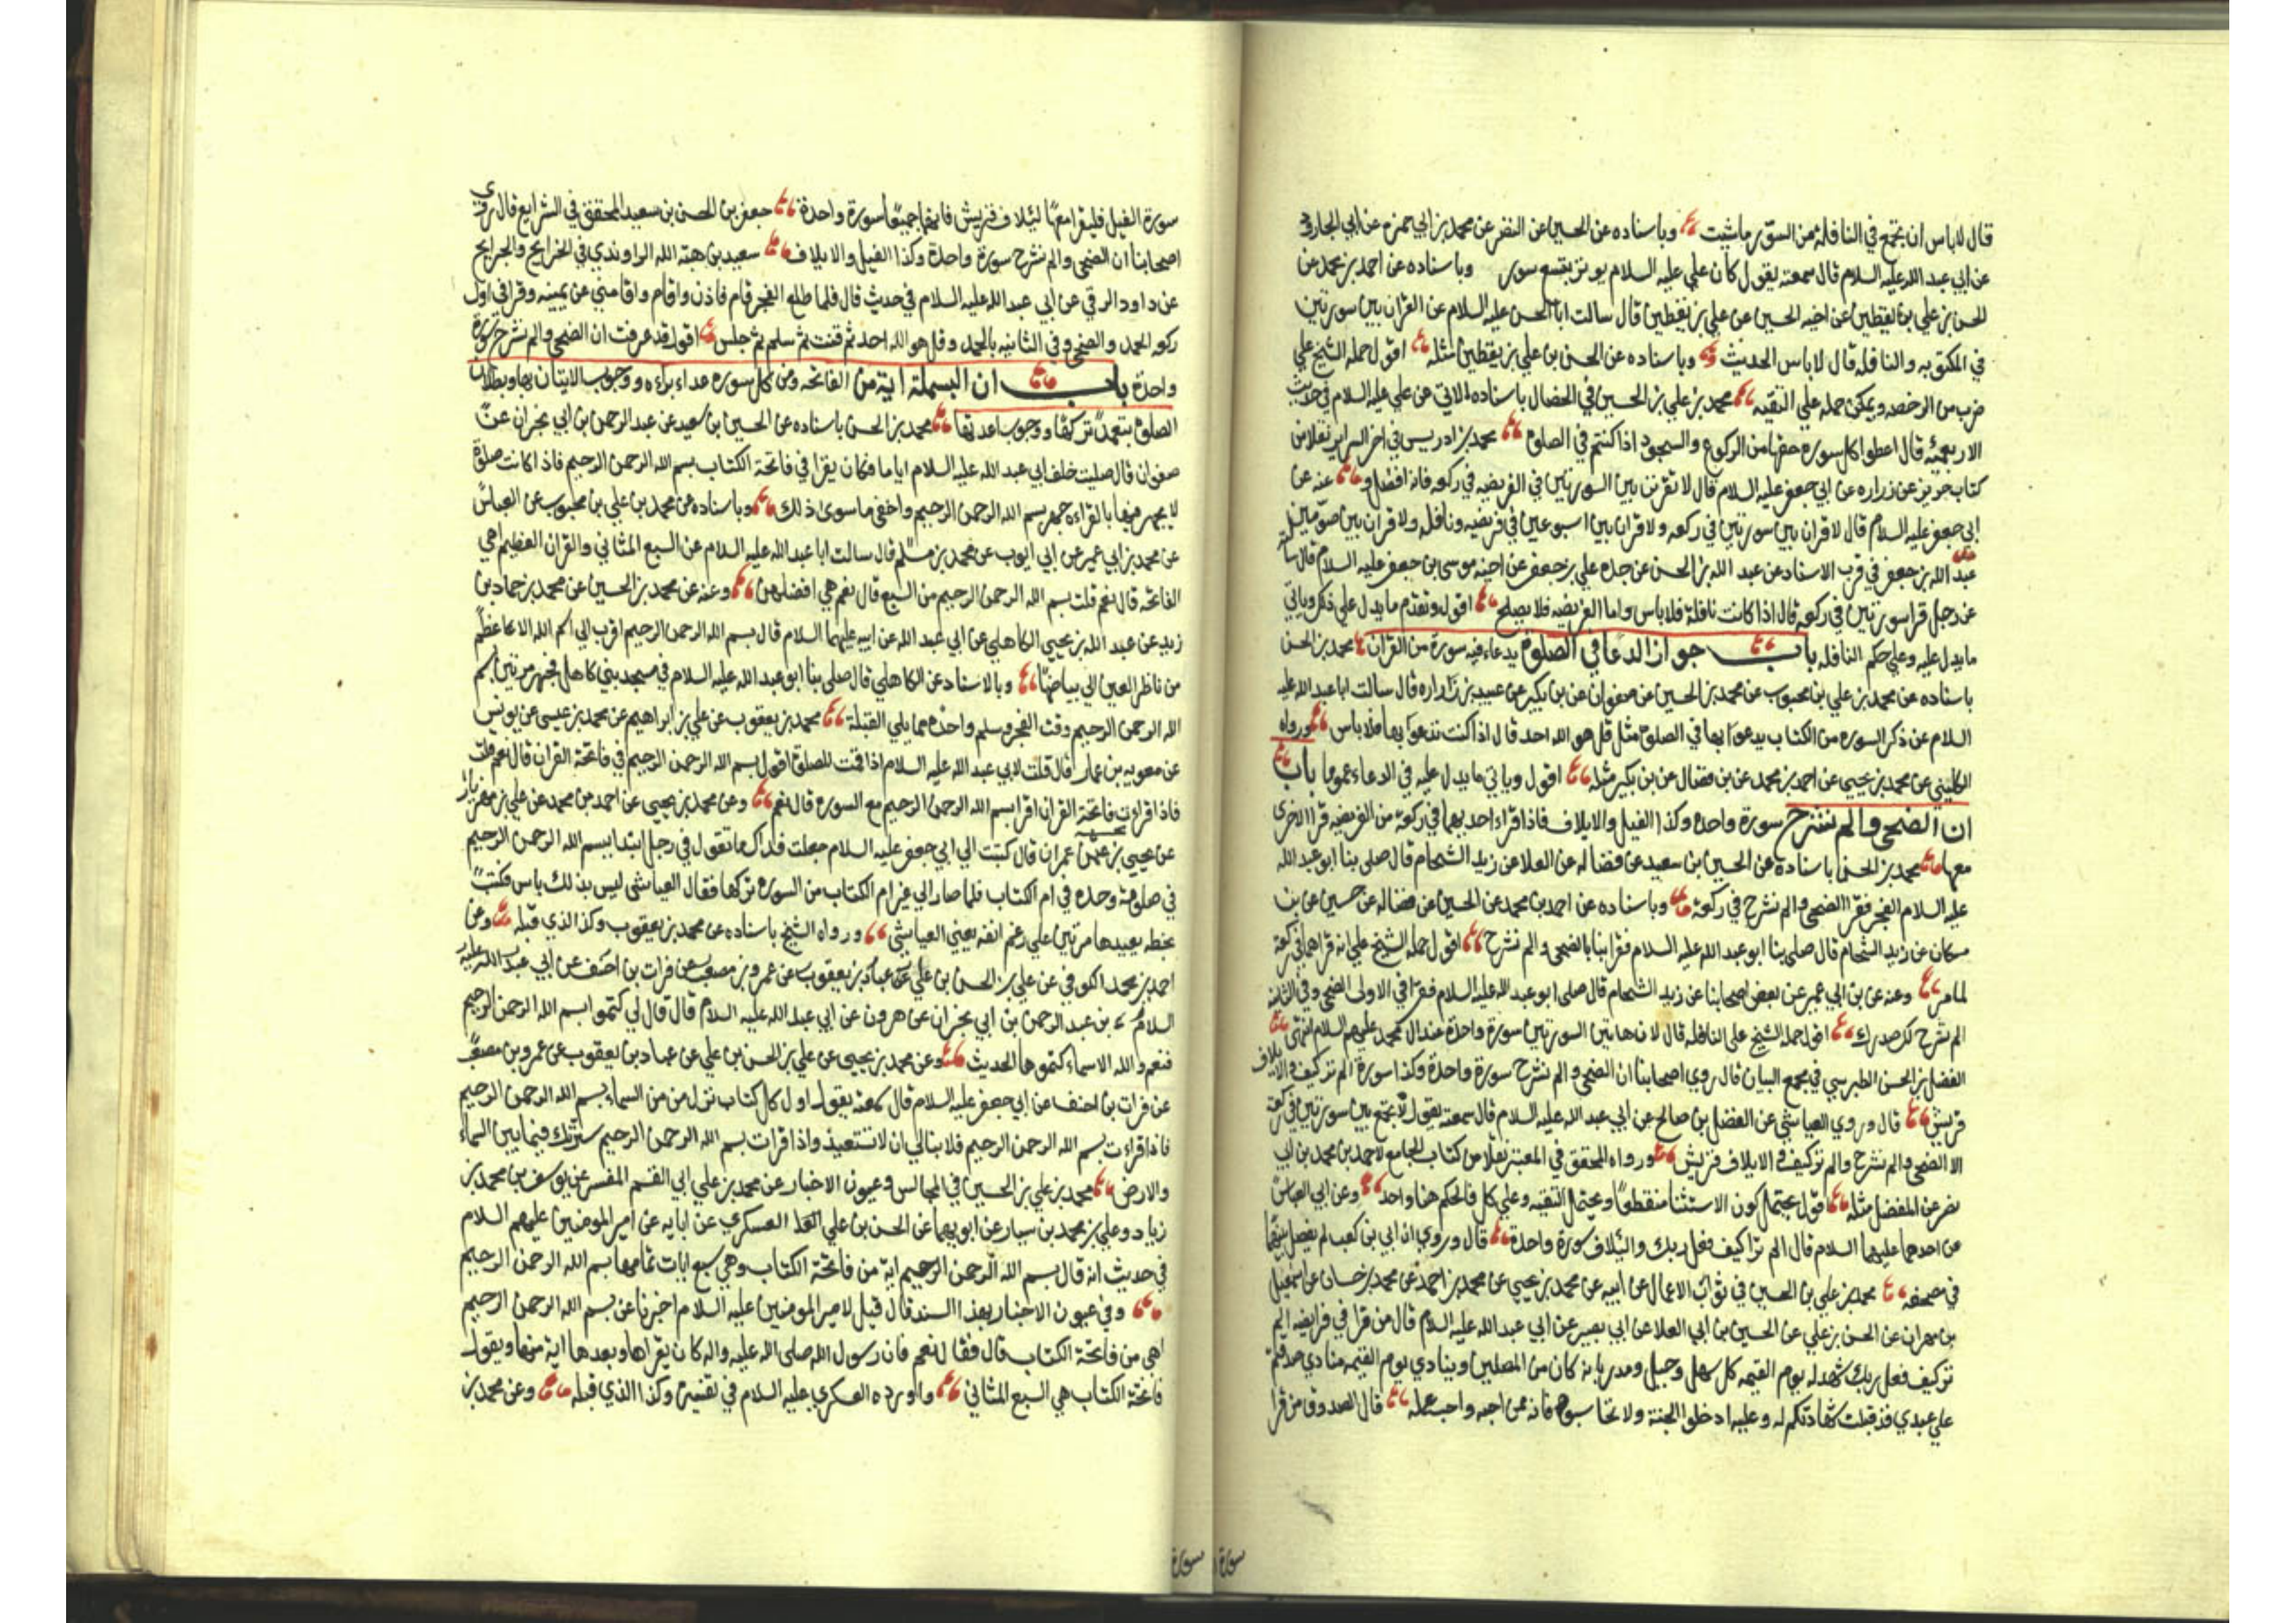 قال لا باس ان تجمع في النافلة من السور ما شئت وباسناده عن الحسين عن النضر عن محمد بن ابي حمزه عن ابي الجارود
عن ابي عبد الله عليه السلام قال سمعته يقول كان علي عليه السلام يوتر بتسع سور وباسناده عن احمد بن محمد عن
الحسن بن علي بن يقطين عن اخيه الحسين عن علي بن يقطين قال سالت ابا الحسن عليه السلام عن القران بين سورتين
في المكتوبه والنافله قال لا باس الحديث وباسناده عن الحسن بن علي بن يقطين مثله اقول حمله الشيخ علي
ضرب من الرخصه ويمكن حمله علي التقيه محمد بن علي بن الحسين في الخصال باسناده الاتي عن علي عليه السلام في حديث
الاربعمئه قال اعطوا كل سوره حقها من الركوع والسجود اذا كنتم في الصلوة محمد بن ادريس في اخر السراير نقلا من
كتاب حريز عن زراره عن ابي جعفر عليه السلام قال لا تقرنن بين السورتين في الفريضه في ركعه فانه افضل و عنه عن
ابي جعفر عليه السلام قال لا قران بين سورتين في ركعه ولا قران بين اسبوعين في فريضه ونافله ولا قران بين صومين
عبد الله بن جعفر في قرب الاسناد عن عبد الله بن الحسن عن جده علي بن جعفر عن اخيه موسى بن جعفر عليه السلام قال سالته
عن رجل قرا سورتين في ركعه قال اذا كانت نافلة فلا باس واما الفريضه فلا يصلح اقول وتقدم ما يدل علي ذلك وياتي
ما يدل عليه وعلي حكم النافله باب جواز الدعا في الصلوة بدعاء فيه سورة من القران محمد بن الحسن
باسناده عن محمد بن علي بن محبوب عن محمد بن الحسين عن صفوان عن بن بكير عن عبيد بن زراره قال سالت ابا عبد الله عليه
السلام عن ذكر السوره من الكتاب يدعوا بها في الصلوة مثل قل هو الله احد قال اذا كنت تدعوا بها فلا باس ورواه
الكليني عن محمد بن يحيى عن احمد بن محمد عن بن فضال عن بن بكير مثله اقول وياتي ما يدل عليه في الدعاء عموما باب
ان الضحى والم نشرح سورة واحده وكذا الفيل والايلاف فاذا قراء احديهما في ركعة من الفريضه قرا الاخرى
معها محمد بن الحسن باسناده عن الحسين بن سعيد عن فضاله عن العلا عن زيد الشحام قال صلى بنا ابو عبد الله
عليه السلام الفجر فقرا الضحى والم نشرح في ركعة وباسناده عن احمد بن محمد عن الحسين عن فضاله عن حسين عن بن
مسكان عن زيد الشحام قال صلى بنا ابو عبد الله عليه السلام فقرا بنا بالضحى والم نشرح اقول حمله الشيخ علي انه قراهما في ركعة
لما مر وعنه عن بن ابي عمير عن بعض اصحابنا عن زيد الشحام قال صلى ابو عبد الله عليه السلام فقرا في الاولى الضحى وفي الثانيه
الم نشرح لك صدرك اقول حمله الشيخ على النافله قال لان هاتين السورتين سورة واحدة عند ال محمد عليهم السلام انتهى
الفضل بن الحسن الطبرسي في مجمع البيان قال روي اصحابنا ان الضحى والم نشرح سورة واحدة وكذا سورة الم تر كيف والايلاف
قريش قال وروي العياشي عن المفضل بن صالح عن ابي عبد الله عليه السلام قال سمعته يقول لا تجمع بين سورتين في ركعة
الا الضحى والم نشرح والم تر كيف والايلاف قريش ورواه المحقق في المعتبر نقلا من كتاب الجامع لاحمد بن محمد بن ابي
نصر عن المفضل مثله اقول يحتمل كون الاستثنا منقطعا ويحتمل التقيه وعلي كل فالحكم هنا واحد وعن ابي العباس
عن احدهما عليهما السلام قال الم تر كيف فعل ربك ولئيلاف سورة واحدة قال وروي ان ابي بن كعب لم يفصل بينهما
في مصحفه محمد بن علي بن الحسين في ثواب الاعمال عن ابيه عن محمد بن يحيى عن محمد بن احمد عن محمد بن حسان عن اسمعيل
بن مهران عن الحسن بن علي عن الحسين بن ابي العلا عن ابي بصير عن ابي عبد الله عليه السلام قال من قرا في فرايضه الم
تر كيف فعل ربك شهد له يوم القيمه كل سهل وجبل ومدر بانه كان من المصلين وينادي يوم القيمه مناد صدقتم
علي عبدي قد قبلت شهادتكم له وعليه ادخلوا الجنة ولا تحاسبوه فانه ممن احبه واحب عمله قال الصدوق من قرا
سورة
سورة الفيل فليقرا معها لئيلاف قريش فانهما جميعا سورة واحدة جعفر بن الحسن بن سعيد المحقق في الشرايع قال روى
اصحابنا ان الضحى والم نشرح سورة واحدة وكذا الفيل والايلاف سعيد بن هبة الله الراوندي في الخرايج والجرايح
عن داود الرقي عن ابي عبد الله عليه السلام في حديث قال فلما طلع الفجر قام فاذن واقام واقامني عن يمينه وقرا في اول
ركعه الحمد والضحى وفي الثانيه بالحمد وقل هو الله احد ثم قنت ثم سلم ثم جلس اقول قد عرفت ان الضحى والم نشرح سورة
واحدة باب ان البسملة اية من الفاتحه ومن كل سوره عدا براءه ووجوب الاتيان بها وبطلان
الصلوة بتعمد تركها ووجوب اعادتها محمد بن الحسن باسناده عن الحسين بن سعيد عن عبد الرحمن بن ابي نجران عن
صفوان قال صليت خلف ابي عبد الله عليه السلام اياما فكان يقرا في فاتحة الكتاب بسم الله الرحمن الرحيم فاذا كانت صلوة
لا يجهر فيها بالقراءه جهر بسم الله الرحمن الرحيم واخفى ما سوى ذلك وباسناده عن محمد بن علي بن محبوب عن العباس
عن محمد بن ابي عمير عن ابي ايوب عن محمد بن مسلم قال سالت ابا عبد الله عليه السلام عن السبع المثاني والقران العظيم اهي
الفاتحه قال نعم قلت بسم الله الرحمن الرحيم من السبع قال نعم هي افضلهن وعنه عن محمد بن الحسين عن محمد بن حماد بن
زيد عن عبد الله بن يحيى الكاهلي عن ابي عبد الله عن ابيه عليهما السلام قال بسم الله الرحمن الرحيم اقرب الي اسم الله الاعظم
من ناظر العين الي بياضها وبالاسناد عن الكاهلي قال صلى بنا ابو عبد الله عليه السلام في مسجد بني كاهل فجهر مرتين بسم
الله الرحمن الرحيم وقنت الفجر وسلم واحده مما يلي القبلة محمد بن يعقوب عن علي بن ابراهيم عن محمد بن عيسى عن يونس
عن معويه بن عمار قال قلت لابي عبد الله عليه السلام اذا قمت للصلوة اقول بسم الله الرحمن الرحيم في فاتحة القران قال نعم قلت
فاذا قراءت فاتحة القران اقرا بسم الله الرحمن الرحيم مع السوره قال نعم وعن محمد بن يحيى عن احمد بن محمد عن علي بن مهزيار
عن يحيى بن عمران قال كتبت الي ابي جعفر عليه السلام جعلت فداك ما تقول في رجل ابتدا ببسم الله الرحمن الرحيم
في صلوته وحده في ام الكتاب فلما صار الي غير ام الكتاب من السوره تركها فقال العباسي ليس بذلك باس فكتب
بخطه يعيدها مرتين علي رغم انفه يعني العياشي ورواه الشيخ باسناده عن محمد بن يعقوب وكذا الذي قبله وعن
احمد بن محمد الكوفي عن علي بن الحسن بن علي عن عباد بن يعقوب عن عمرو بن مصعب عن فرات بن احنف عن ابي عبد الله عليه
السلام بن عبد الرحمن بن ابي نجران عن هرون عن ابي عبد الله عليه السلام قال قال لي كتموا بسم الله الرحمن الرحيم
فنعم والله الاسماء كتموها الحديث وعن محمد بن يحيى عن علي بن الحسن بن علي عن عباد بن يعقوب عن عمرو بن مصعب
عن فرات بن احنف عن ابي جعفر عليه السلام قال سمعته يقول اول كل كتاب نزل من السماء بسم الله الرحمن الرحيم
فاذا قراءت بسم الله الرحمن الرحيم فلا تبالي ان لا تستعيذ واذا قرات بسم الله الرحمن الرحيم سترتك فيما بين السماء
والارض محمد بن علي بن الحسين في المجالس وعيون الاخبار عن محمد بن علي ابي القسم المفسر عن يوسف بن محمد بن
زياد وعلي بن محمد بن سيار عن ابويهما عن الحسن بن علي العسكري عن ابايه عن امير المومنين عليهم السلام
في حديث انه قال بسم الله الرحمن الرحيم اية من فاتحة الكتاب وهي سبع ايات تمامها بسم الله الرحمن الرحيم
وفي عيون الاخبار بهذا السند قال قيل لامير المومنين عليه السلام اخبرنا عن بسم الله الرحمن الرحيم
اهي من فاتحة الكتاب قال فقال نعم فان رسول الله صلى الله عليه واله كان يقراها ويعدها اية منها ويقول
فاتحة الكتاب هي السبع المثاني واورده العسكري عليه السلام في تفسيره وكذا الذي قبله وعن محمد بن
سورة